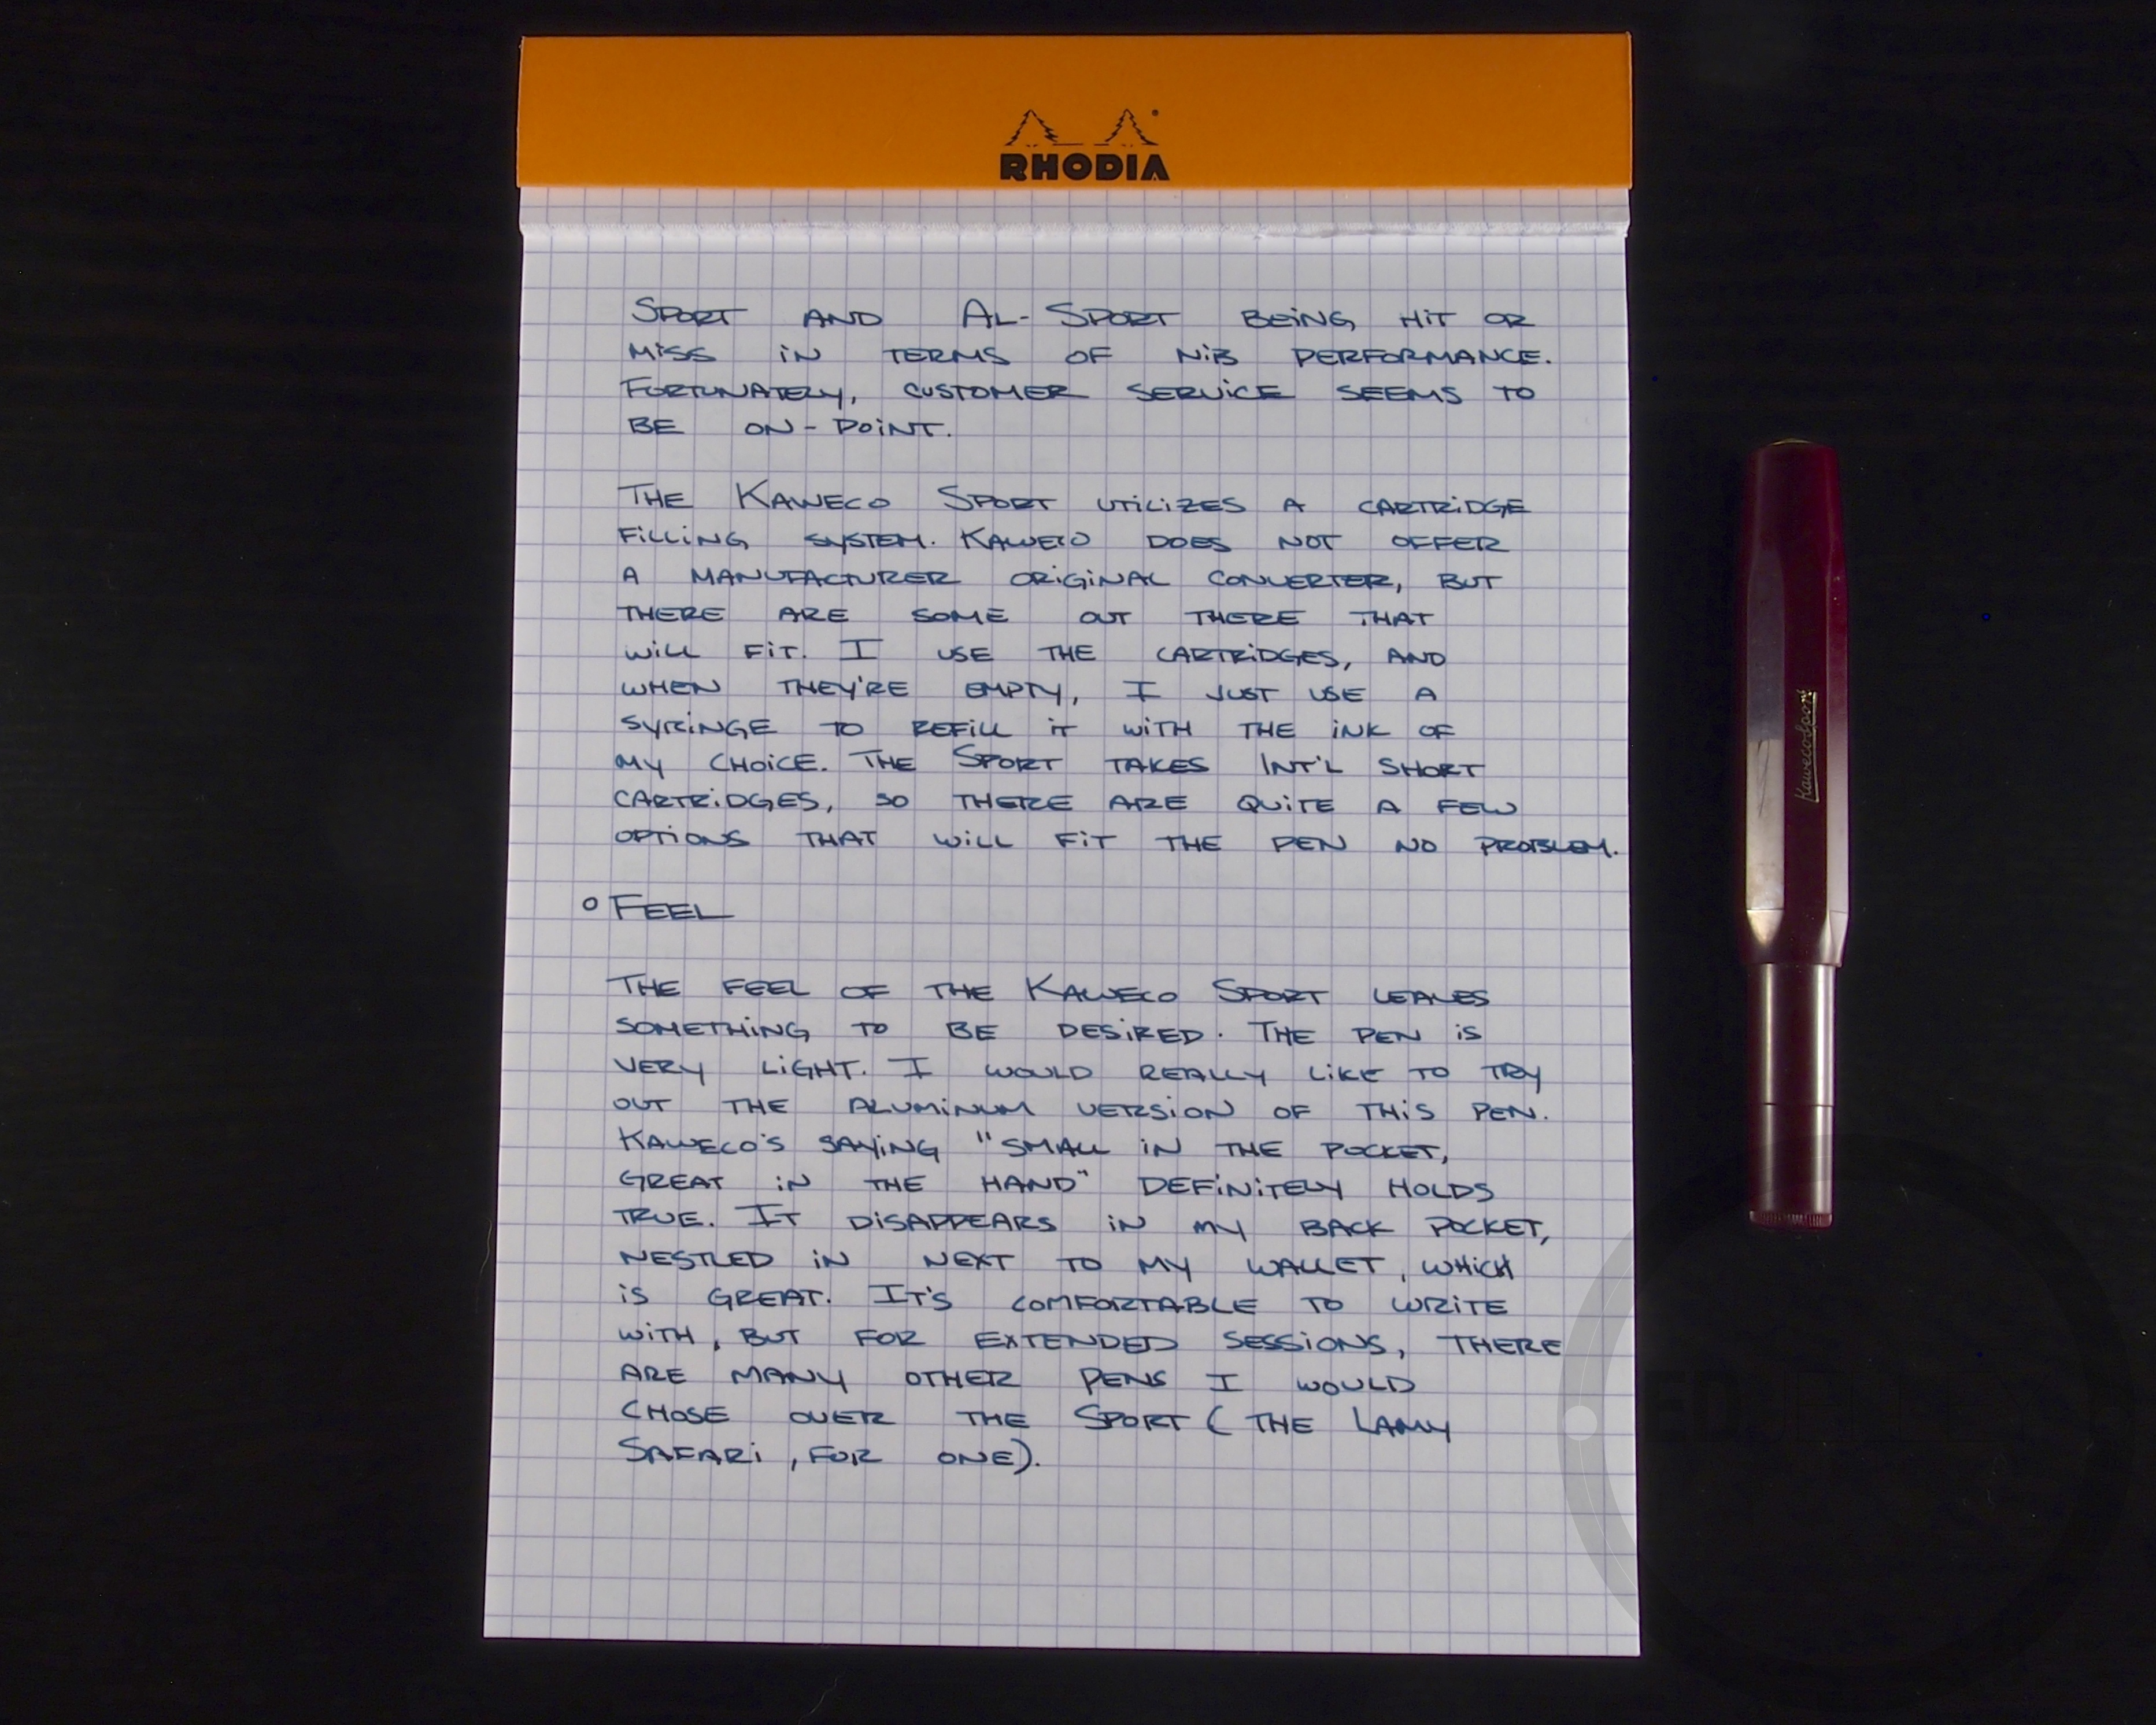 RHODIA
SPORT AND AL-SPORT BEING HIT OR
MISS IN TERMS OF NIB PERFORMANCE.
FORTUNATELY, CUSTOMER SERVICE SEEMS TO
BE ON-POINT.
THE KAWECO SPORT UTILIZES A CARTRIDGE
FILLING SYSTEM. KAWECO DOES NOT OFFER
A MANUFACTURER ORIGINAL CONVERTER, BUT
THERE ARE SOME OUT THERE THAT
WILL FIT. I USE THE CARTRIDGES, AND
WHEN THEY'RE EMPTY, I JUST USE A
SYRINGE TO REFILL IT WITH THE INK OF
MY CHOICE. THE SPORT TAKES INT'L SHORT
CARTRIDGES, SO THERE ARE QUITE A FEW
OPTIONS THAT WILL FIT THE PEN NO PROBLEM.
° FEEL
THE FEEL OF THE KAWECO SPORT LEAVES
SOMETHING TO BE DESIRED. THE PEN IS
VERY LIGHT. I WOULD REALLY LIKE TO TRY
OUT THE ALUMINUM VERSION OF THIS PEN.
KAWECO'S SAYING "SMALL IN THE POCKET,
GREAT IN THE HAND" DEFINITELY HOLDS
TRUE. IT DISAPPEARS IN MY BACK POCKET,
NESTLED IN NEXT TO MY WALLET, WHICH
IS GREAT. IT'S COMFORTABLE TO WRITE
WITH, BUT FOR EXTENDED SESSIONS, THERE
ARE MANY OTHER PENS I WOULD
CHOSE OVER THE SPORT (THE LAMY
SAFARI, FOR ONE).
KawecoSport